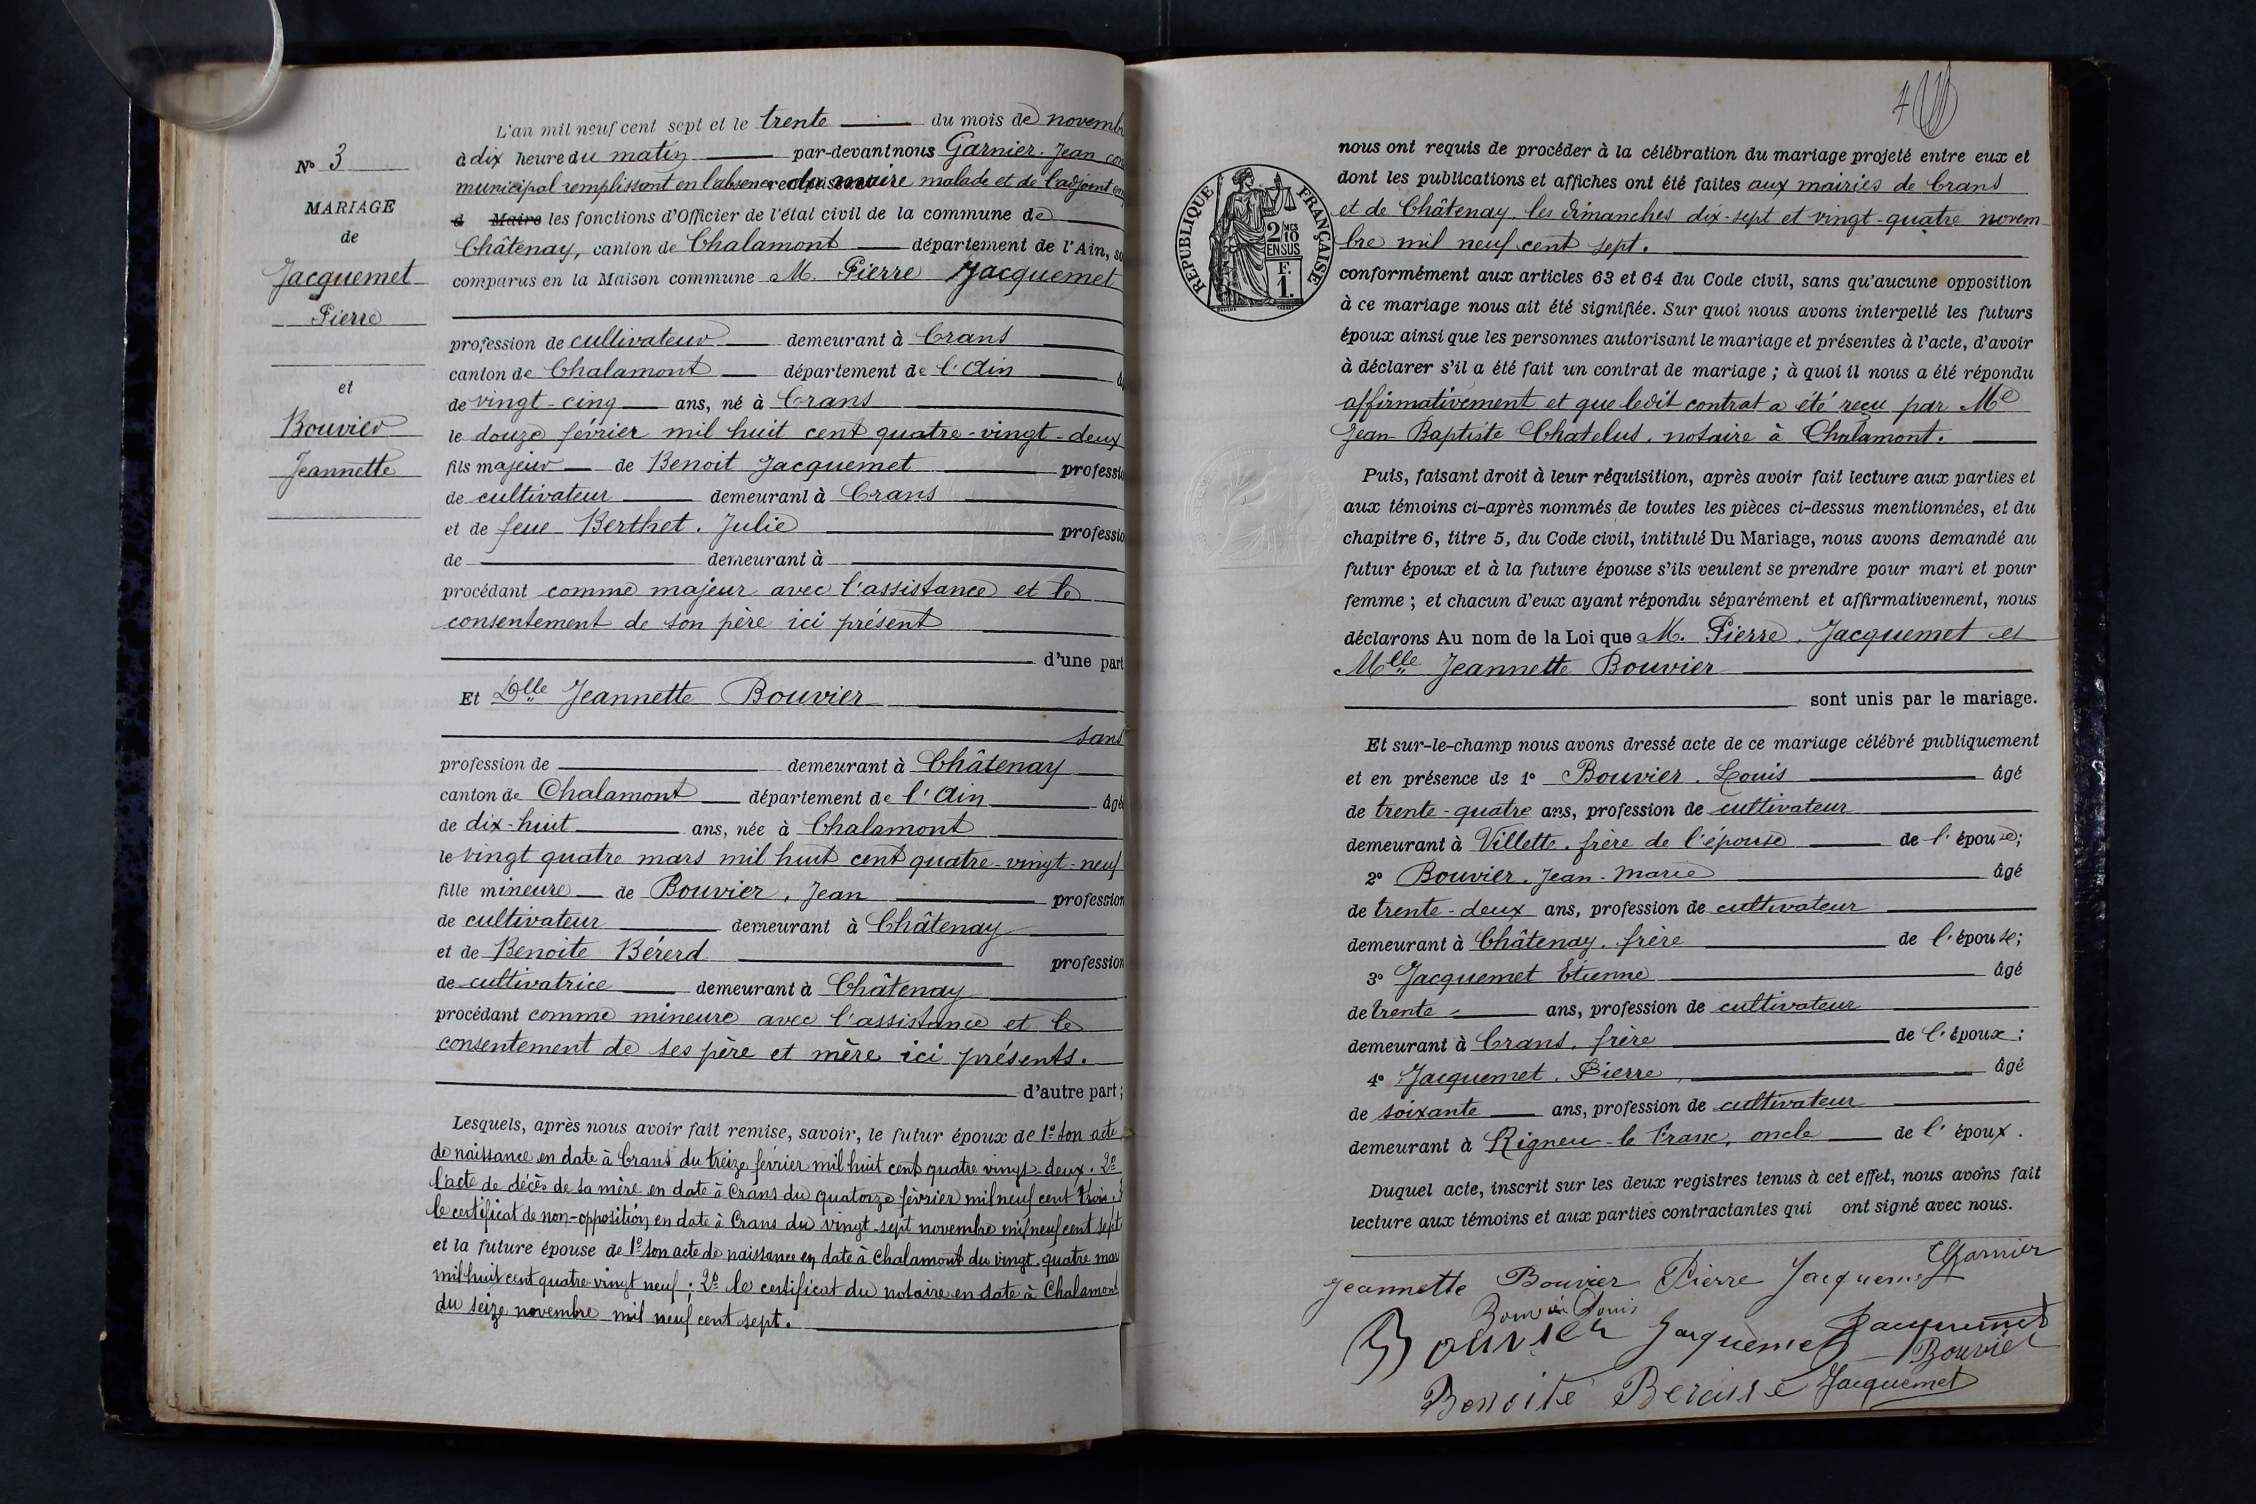 N° 3
MARIAGE
de
Jacquemet
Pierre
et
Bouvier
Jeannette
L'an mil neuf cent sept et le trente du mois de novembre
à dix heure du matin par-devant nous Garnier Jean
municipal remplissant en l'absence du maire malade et de l'adjoint
Maire les fonctions d'Officier de l'état civil de la commune de
Châtenay, canton de Chalamont département de l'Ain,
comparus en la Maison commune M. Pierre Jacquemet
profession de cultivateur demeurant à Crans
canton de Chalamont département de l'Ain
de vingt-cinq ans, né à Crans
le douze février mil huit cent quatre-vingt-deux
fils majeur de Benoit Jacquemet profession
de cultivateur demeurant à Crans
et de feue Berthet. Julie profession
de demeurant à
procédant comme majeur avec l'assistance et le
consentement de son père ici présent
d'une part
Et Dlle Jeannette Bouvier
sans
profession de demeurant à Châtenay
canton de Chalamont département de l'Ain âgé
de dix-huit ans, née à Chalamont
le vingt quatre mars mil huit cent quatre-vingt-neuf
fille mineure de Bouvier, Jean profession
de cultivateur demeurant à Châtenay
et de Benoite Bérerd profession
de cultivatrice demeurant à Châtenay
procédant comme mineure avec l'assistance et le
consentement de ses père et mère ici présents.
d'autre part;
Lesquels, après nous avoir fait remise, savoir, le futur époux de 1° son acte
de naissance en date à Crans du treize février mil huit cent quatre vingt-deux. 2°
l'acte de décès de sa mère en date à Crans du quatorze février mil neuf cent trois. 3
le certificat de non-opposition en date à Crans du vingt-sept novembre mil neuf cent sept
et la future épouse de 1° son acte de naissance en date à Chalamont du vingt-quatre mars
mil huit cent quatre-vingt neuf; 2° le certificat du notaire en date à Chalamont
du seize novembre mil neuf cent sept.
4
RÉPUBLIQUE FRANÇAISE
2 MES 10 EN SUS
F. 1.
nous ont requis de procéder à la célébration du mariage projeté entre eux et
dont les publications et affiches ont été faites aux mairies de Crans
et de Châtenay. les dimanches dix-sept et vingt-quatre novem
bre mil neuf cent sept.
conformément aux articles 63 et 64 du Code civil, sans qu'aucune opposition
à ce mariage nous ait été signifiée. Sur quoi nous avons interpellé les futurs
époux ainsi que les personnes autorisant le mariage et présentes à l'acte, d'avoir
à déclarer s'il a été fait un contrat de mariage; à quoi il nous a été répondu
affirmativement et que ledit contrat a été reçu par Me
Jean-Baptiste Chatelus, notaire à Chalamont.
Puis, faisant droit à leur réquisition, après avoir fait lecture aux parties et
aux témoins ci-après nommés de toutes les pièces ci-dessus mentionnées, et du
chapitre 6, titre 5, du Code civil, intitulé Du Mariage, nous avons demandé au
futur époux et à la future épouse s'ils veulent se prendre pour mari et pour
femme; et chacun d'eux ayant répondu séparément et affirmativement, nous
déclarons Au nom de la Loi que M. Pierre, Jacquemet et
Mlle Jeannette Bouvier
sont unis par le mariage.
Et sur-le-champ nous avons dressé acte de ce mariage célébré publiquement
et en présence de 1° Bouvier. Louis âgé
de trente-quatre ans, profession de cultivateur
demeurant à Villette. frère de l'épouse de l'épouse;
2° Bouvier. Jean-Marie âgé
de trente-deux ans, profession de cultivateur
demeurant à Châtenay. frère de l'épouse;
3° Jacquemet Etienne âgé
de trente ans, profession de cultivateur
demeurant à Crans. frère de l'époux;
4° Jacquemet. Pierre âgé
de soixante ans, profession de cultivateur
demeurant à Rigneu-le Franc, oncle de l'époux.
Duquel acte, inscrit sur les deux registres tenus à cet effet, nous avons fait
lecture aux témoins et aux parties contractantes qui ont signé avec nous.
Jeannette Bouvier Pierre Jacquemet Garnier
Bouvier Louis
Bouvier Jacquemet Jacquemet
Bouvier
Benoite Jacquemet